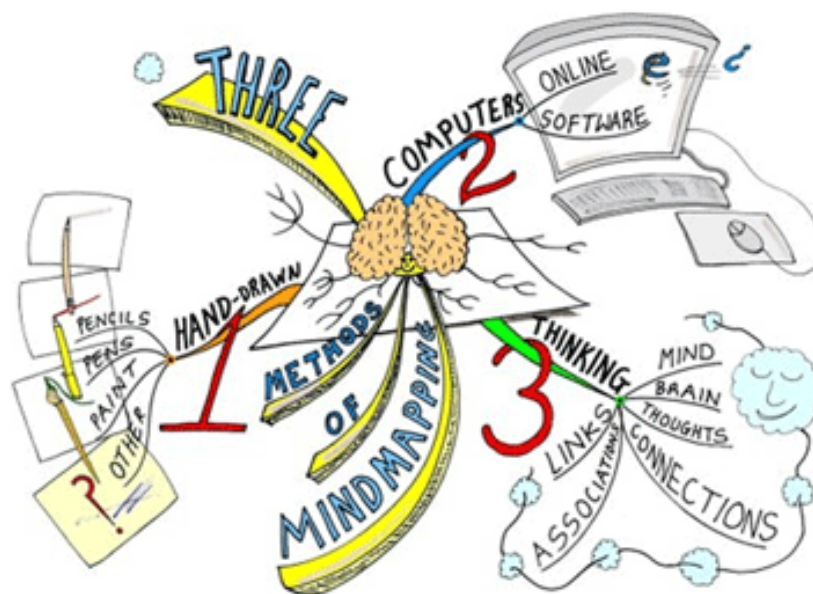 THREE
METHODS
OF
MINDMAPPING
1
HAND-DRAWN
PENCILS
PENS
PAINT
OTHER
?
2
COMPUTERS
ONLINE
SOFTWARE
e
?
3
THINKING
MIND
BRAIN
THOUGHTS
CONNECTIONS
LINKS
ASSOCIATIONS